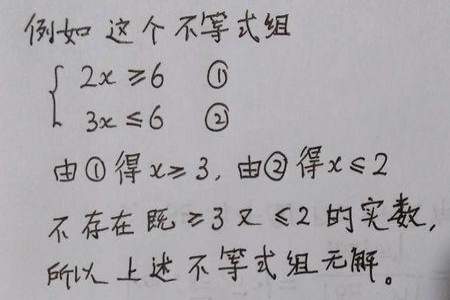 例如这个不等式组
2x≥6 ①
3x≤6 ②
由①得x≥3,由②得x≤2
不存在既≥3又≤2的实数,
所以上述不等式组无解。